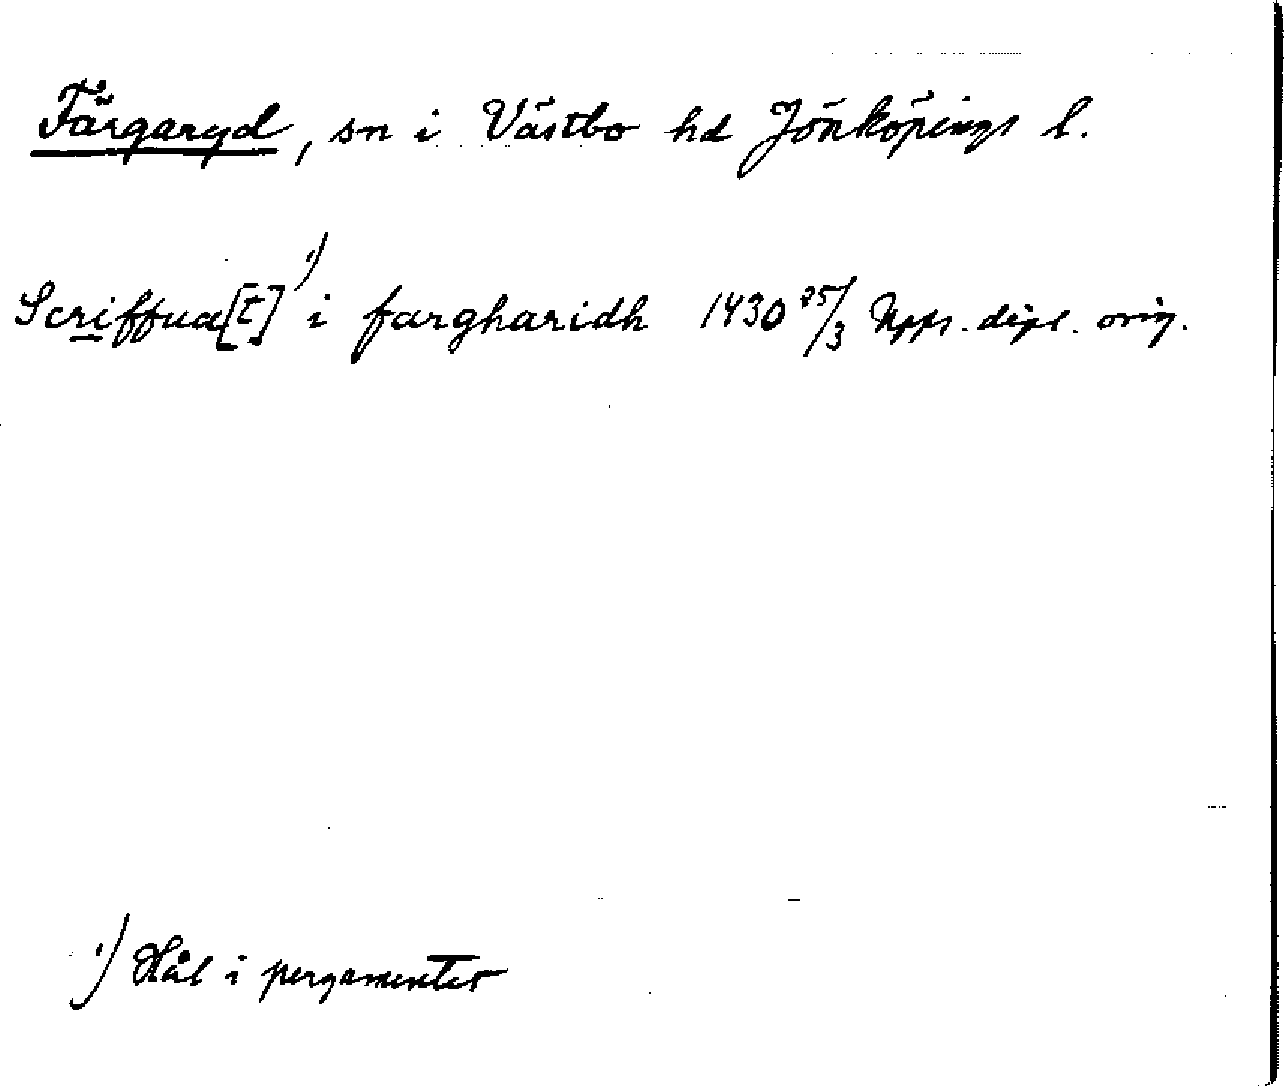 Färgaryd, sn i Västbo hd Jönköpings l.
Scriffua[t] ¹) i fargharidh 1430 25/3 Upps. dipl. orig.
¹) Hål i pergamentet